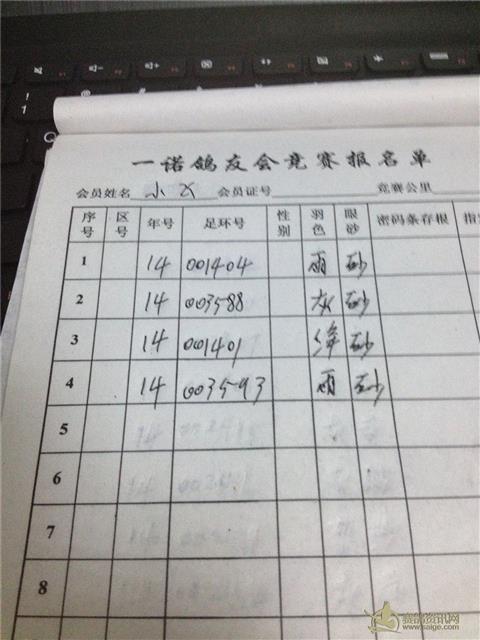 一诺鸽友会竞赛报名单
会员姓名 小 会员证号 竞赛公里
序号 区号 年号 足环号 性别 羽色 眼砂 密码条存根 指定
1 14 001404 雨 砂
2 14 003588 灰 砂
3 14 001401 绛 砂
4 14 003593 雨 砂
5
6
7
8
赛鸽资讯网
www.saige.com